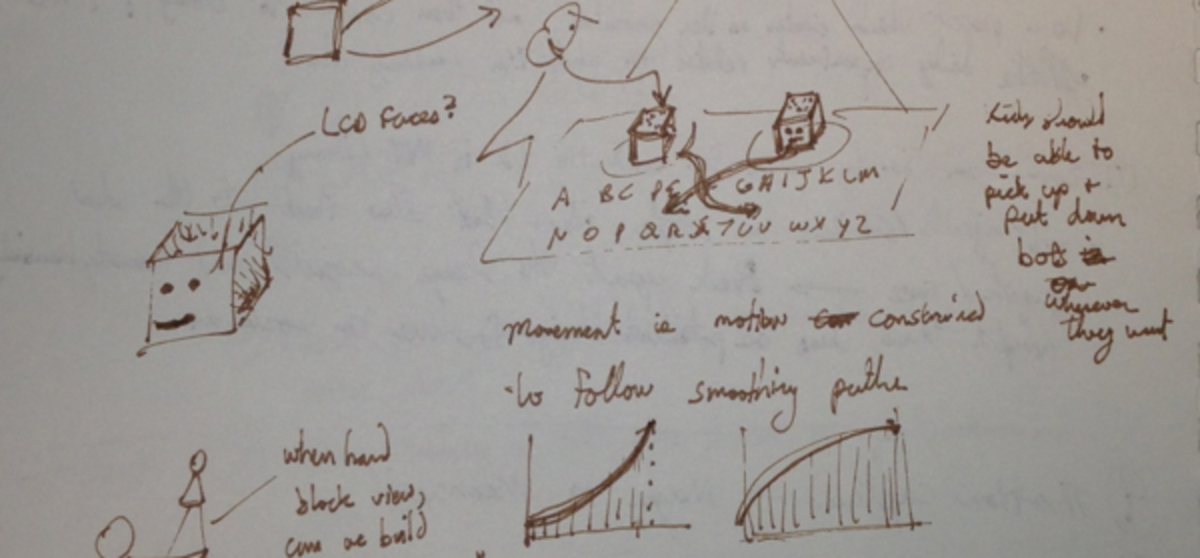 LCD Faces?
A BC DE F GHIJKLM
N O P Q R S T U V W X Y Z
Kids should
be able to
pick up +
put down
bots
wherever
they want
movement ie motion constrained
to follow smoothing paths
when hand
block view,
can we build